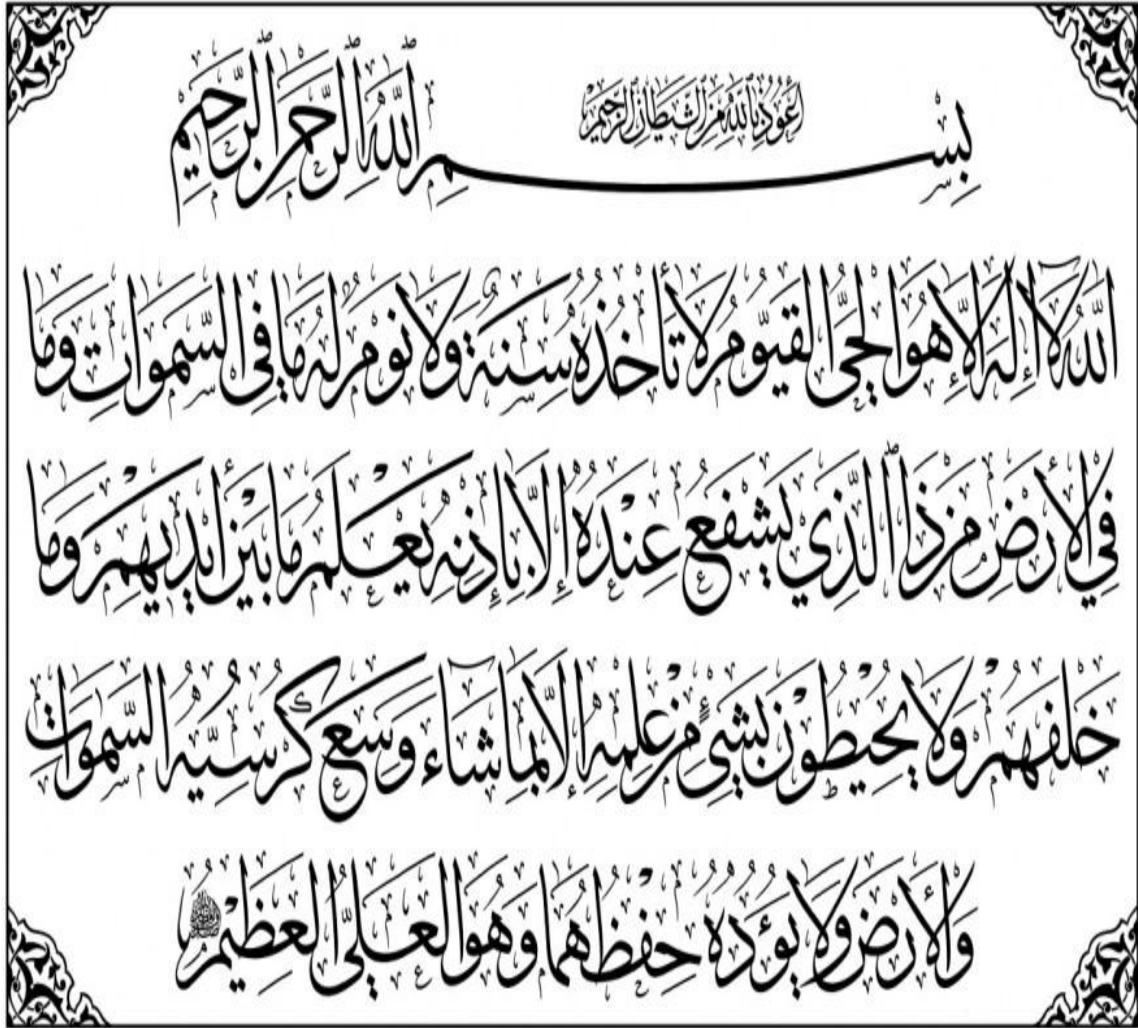 أعوذ بالله من الشيطان الرجيم
بِسْمِ اللَّهِ الرَّحْمَنِ الرَّحِيمِ
اللَّهُ لَا إِلَهَ إِلَّا هُوَ الْحَيُّ الْقَيُّومُ لَا تَأْخُذُهُ سِنَةٌ وَلَا نَوْمٌ لَهُ مَا فِي السَّمَوَاتِ وَمَا
فِي الْأَرْضِ مَنْ ذَا الَّذِي يَشْفَعُ عِنْدَهُ إِلَّا بِإِذْنِهِ يَعْلَمُ مَا بَيْنَ أَيْدِيهِمْ وَمَا
خَلْفَهُمْ وَلَا يُحِيطُونَ بِشَيْءٍ مِنْ عِلْمِهِ إِلَّا بِمَا شَاءَ وَسِعَ كُرْسِيُّهُ السَّمَوَاتِ
وَالْأَرْضَ وَلَا يَؤُدُهُ حِفْظُهُمَا وَهُوَ الْعَلِيُّ الْعَظِيمُ